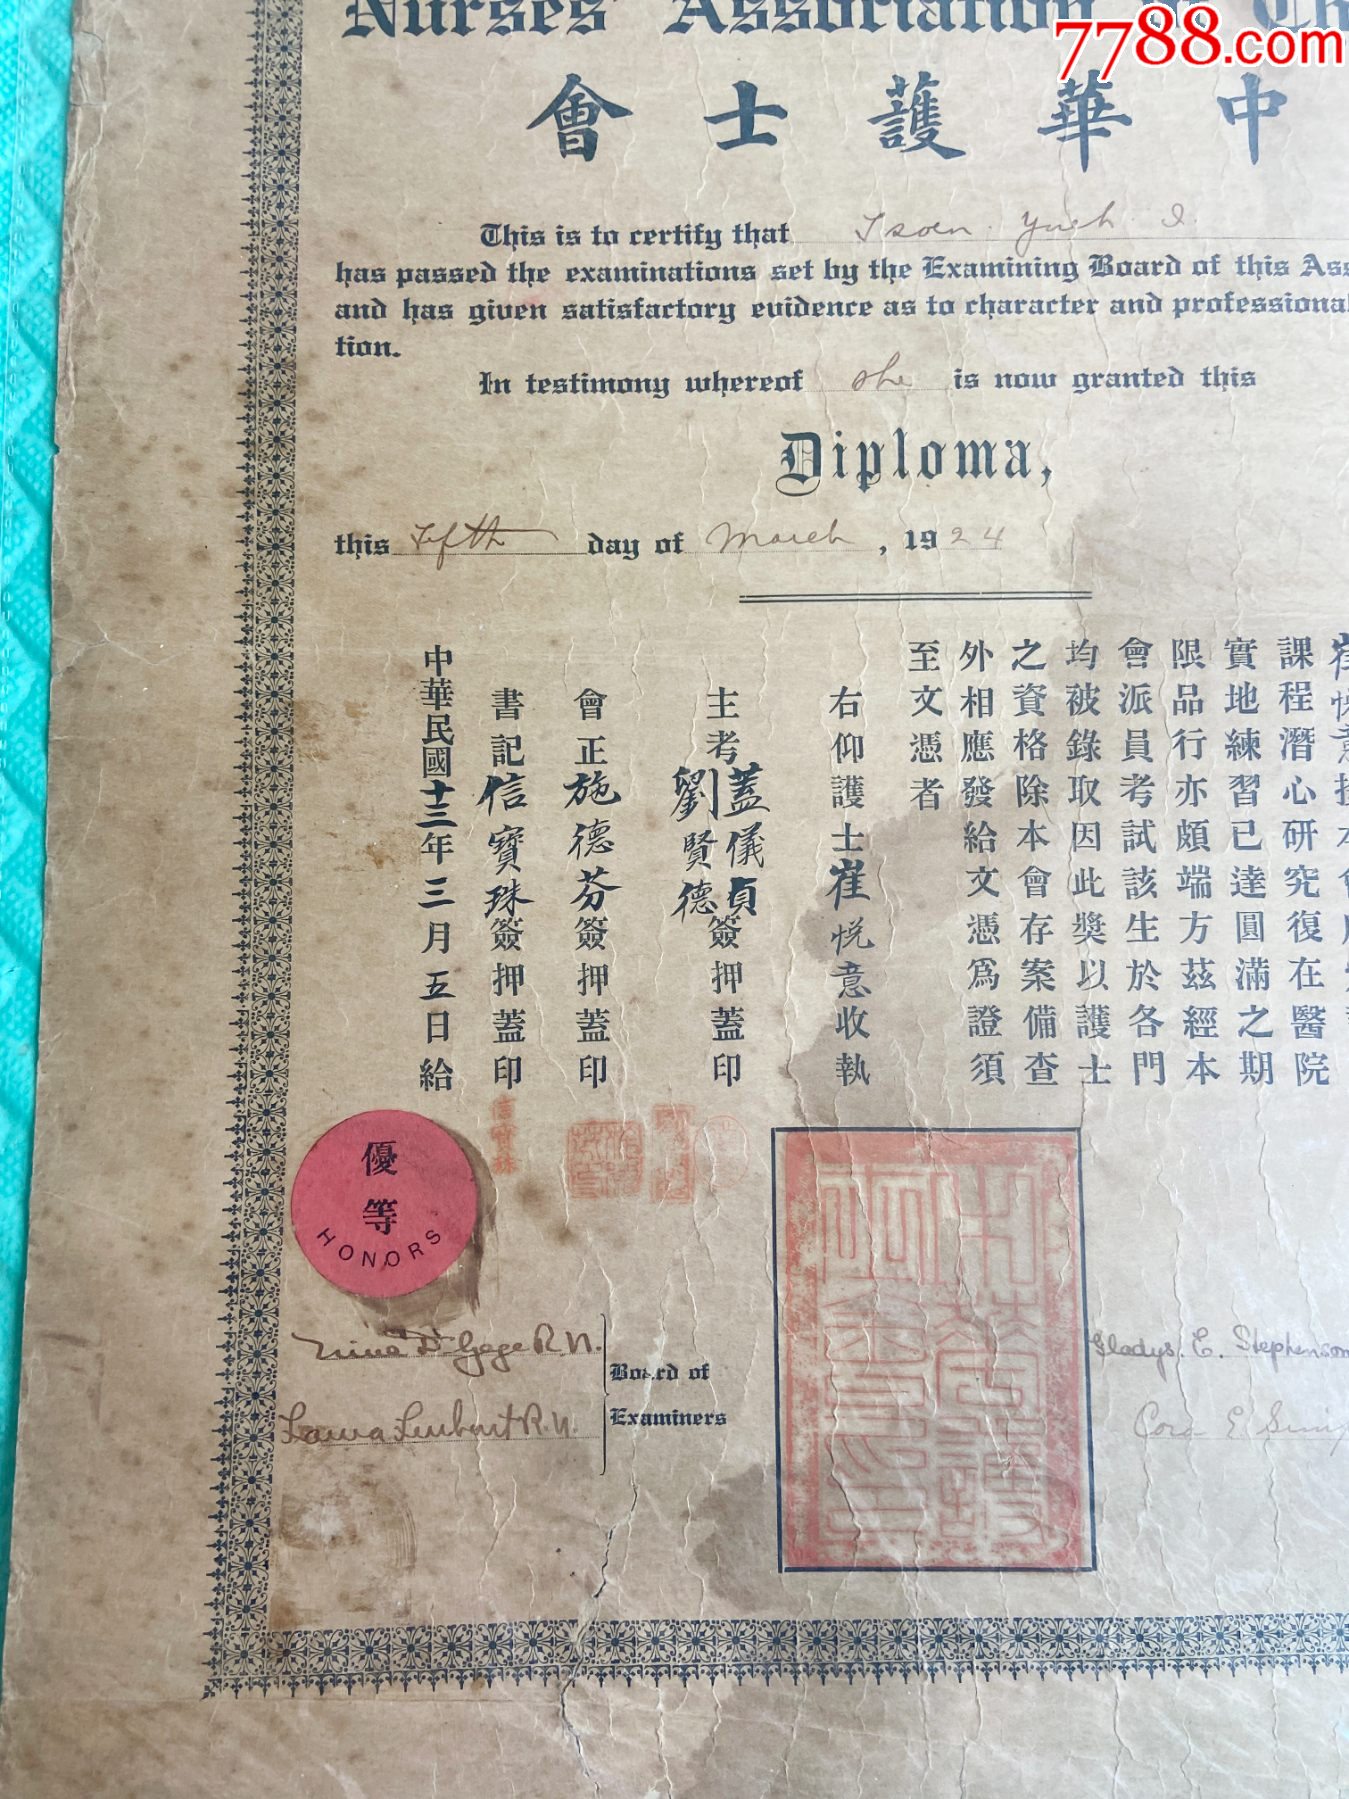 Nurses' Association of Ch
7788.com
中華護士會
This is to certify that Tsoen Yueh I.
has passed the examinations set by the Examining Board of this Ass
and has given satisfactory evidence as to character and professional
tion.
In testimony whereof she is now granted this
Diploma,
this Fifth day of March, 1924
崔悅意
課程潛心研究復在醫院
實地練習已達圓滿之期
限品行亦頗端方茲經本
會派員考試該生於各門
均被錄取因此獎以護士
之資格除本會存案備查
外相應發給文憑爲證須
至文憑者
右仰護士崔悅意收執
主考蓋儀貞劉賢德簽押蓋印
會正施德芬簽押蓋印
書記信寶珠簽押蓋印
中華民國十三年三月五日給
信寶珠
優等
HONORS
Nina D. Gage R.N.
Board of
Examiners
Gladys. E. Stephenson
Cora E. Simp